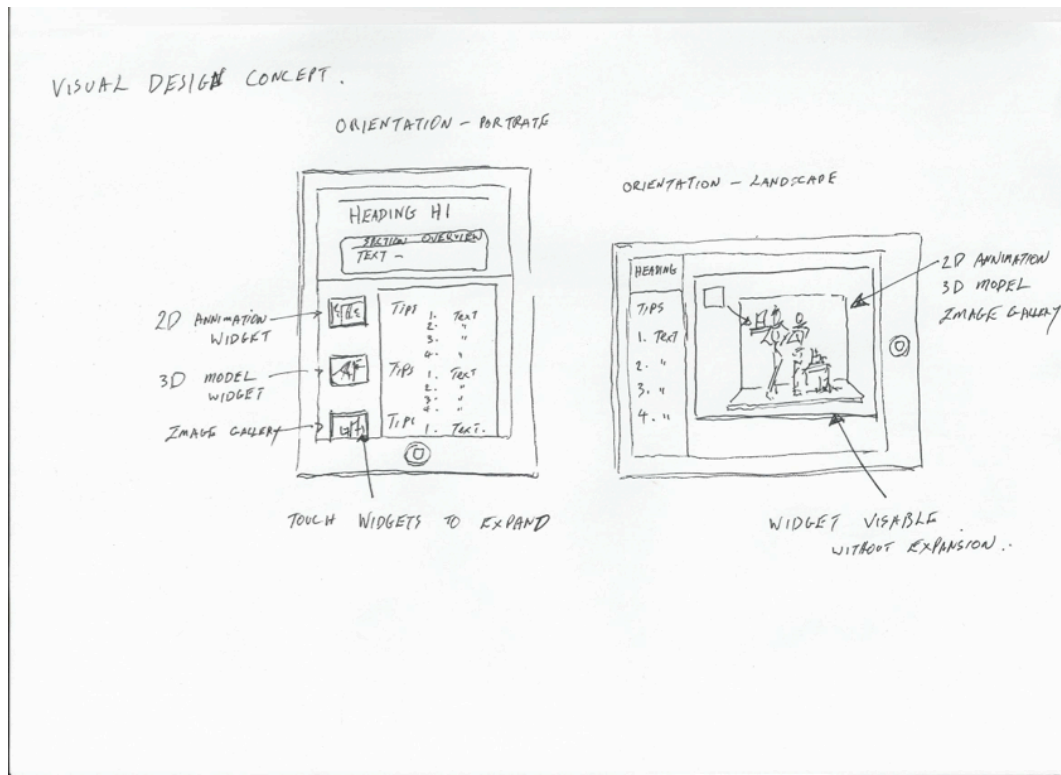 VISUAL DESIGN CONCEPT.
ORIENTATION - PORTRATE
HEADING H1
SECTION OVERVIEW
TEXT -
2D ANNIMATION
WIDGET
3D MODEL
WIDGET
IMAGE GALLERY
TIPS
1. TEXT
2. "
3. "
4. "
TIPS
1. TEXT
2. "
3. "
4. "
TIPS
1. TEXT.
TOUCH WIDGETS TO EXPAND
ORIENTATION - LANDSCAPE
HEADING
TIPS
1. TEXT
2. "
3. "
4. "
2D ANNIMATION
3D MODEL
IMAGE GALLERY
WIDGET VISABLE
WITHOUT EXPANSION..